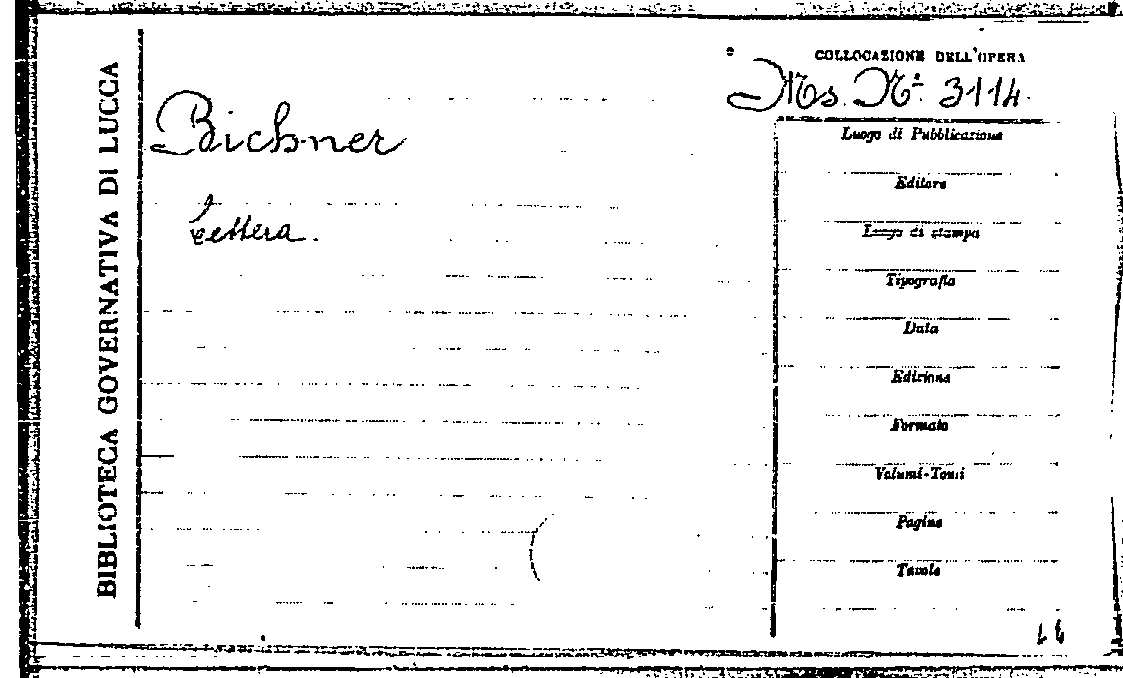 BIBLIOTECA GOVERNATIVA DI LUCCA
COLLOCAZIONE DELL'OPERA
Ms. N° 3114.
Bichner
Lettera.
Luogo di Pubblicazione
Editore
Luogo di stampa
Tipografia
Data
Edizione
Formato
Volumi-Tomi
Pagine
Tavole